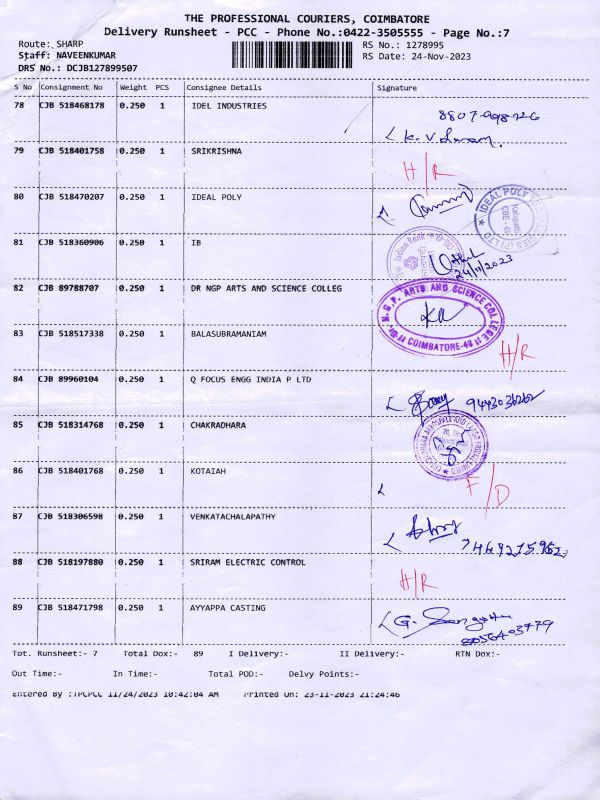 THE PROFESSIONAL COURIERS, COIMBATORE
Delivery Runsheet - PCC - Phone No.:0422-3505555 - Page No.:7
Route: SHARP RS No.: 1278995
Staff: NAVEENKUMAR RS Date: 24-Nov-2023
DRS No.: DCJB127899507
S No Consignment No Weight PCS Consignee Details Signature
78 CJB 518468178 0.250 1 IDEL INDUSTRIES
79 CJB 518401758 0.250 1 SRIKRISHNA H/R
80 CJB 518470207 0.250 1 IDEAL POLY
81 CJB 518360906 0.250 1 IB Indian Bank 24/11/2023
82 CJB 89788707 0.250 1 DR NGP ARTS AND SCIENCE COLLEG
Dr. N.G.P. ARTS AND SCIENCE COLLEGE COIMBATORE-48
83 CJB 518517338 0.250 1 BALASUBRAMANIAM H/R
84 CJB 89960104 0.250 1 Q FOCUS ENGG INDIA P LTD 9443036262
85 CJB 518314768 0.250 1 CHAKRADHARA
86 CJB 518401768 0.250 1 KOTAIAH F/D
87 CJB 518306598 0.250 1 VENKATACHALAPATHY
88 CJB 518197880 0.250 1 SRIRAM ELECTRIC CONTROL H/R
89 CJB 518471798 0.250 1 AYYAPPA CASTING 8056403479
Tot. Runsheet:- 7 Total Dox:- 89 I Delivery:- II Delivery:- RTN Dox:-
Out Time:- In Time:- Total POD:- Delvy Points:-
Entered By :TPCPCC 11/24/2023 10:42:04 AM Printed On: 23-11-2023 21:24:46